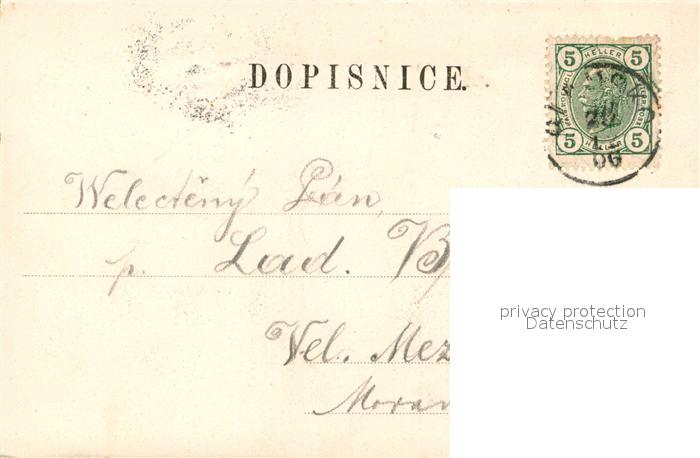 DOPISNICE.
5 HELLER 5
5 HELLER 5
06
Welectěný Pán,
p. Lad. B
Vel. Mez
Morav
privacy protection
Datenschutz